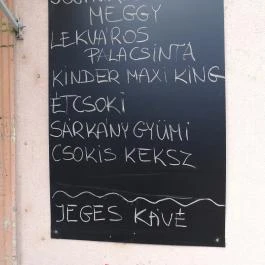 MEGGY
LEKVÁROS
PALACSINTA
KINDER MAXI KING
ÉTCSOKI
SÁRKÁNYGYÜMI
CSOKIS KEKSZ
JEGES KÁVÉ